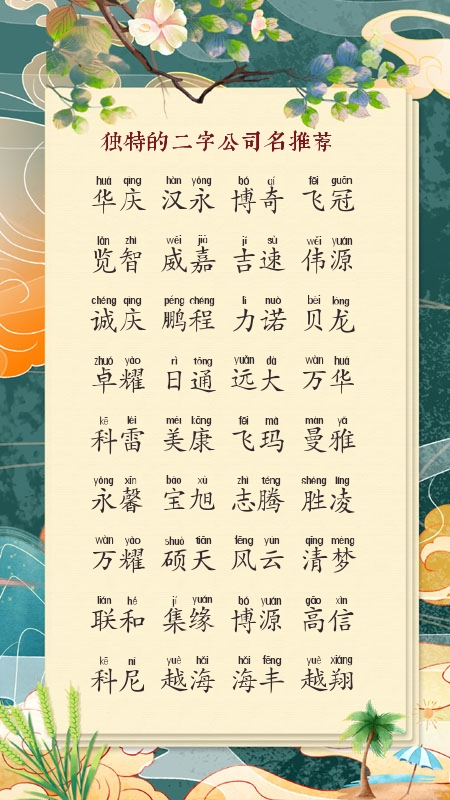 独特的二字公司名推荐
huá qìng hàn yǒng bó qí fēi guān
华庆 汉永 博奇 飞冠
lǎn zhì wēi jiā jí sù wěi yuán
览智 威嘉 吉速 伟源
chéng qìng péng chéng lì nuò bèi lóng
诚庆 鹏程 力诺 贝龙
zhuó yào rì tōng yuǎn dà wàn huá
卓耀 日通 远大 万华
kē léi měi kāng fēi mǎ màn yǎ
科雷 美康 飞玛 曼雅
yǒng xīn bǎo xù zhì téng shèng líng
永馨 宝旭 志腾 胜凌
wàn yào shuò tiān fēng yún qīng mèng
万耀 硕天 风云 清梦
lián hé jí yuán bó yuán gāo xìn
联和 集缘 博源 高信
kē ní yuè hǎi hǎi fēng yuè xiáng
科尼 越海 海丰 越翔